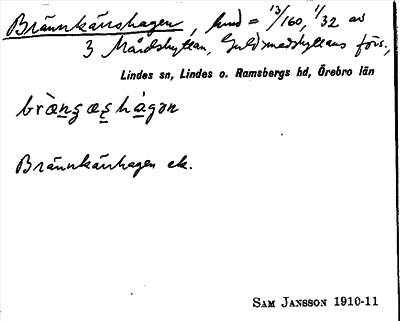 Brännkärrshagen, lund = 13/160, 1/32 av
3 Mårdshyttan, Guldsmedshyttans förs.,
Lindes sn, Lindes o. Ramsbergs hd, Örebro län
Brännkärrhagen ek.
SAM JANSSON 1910-11